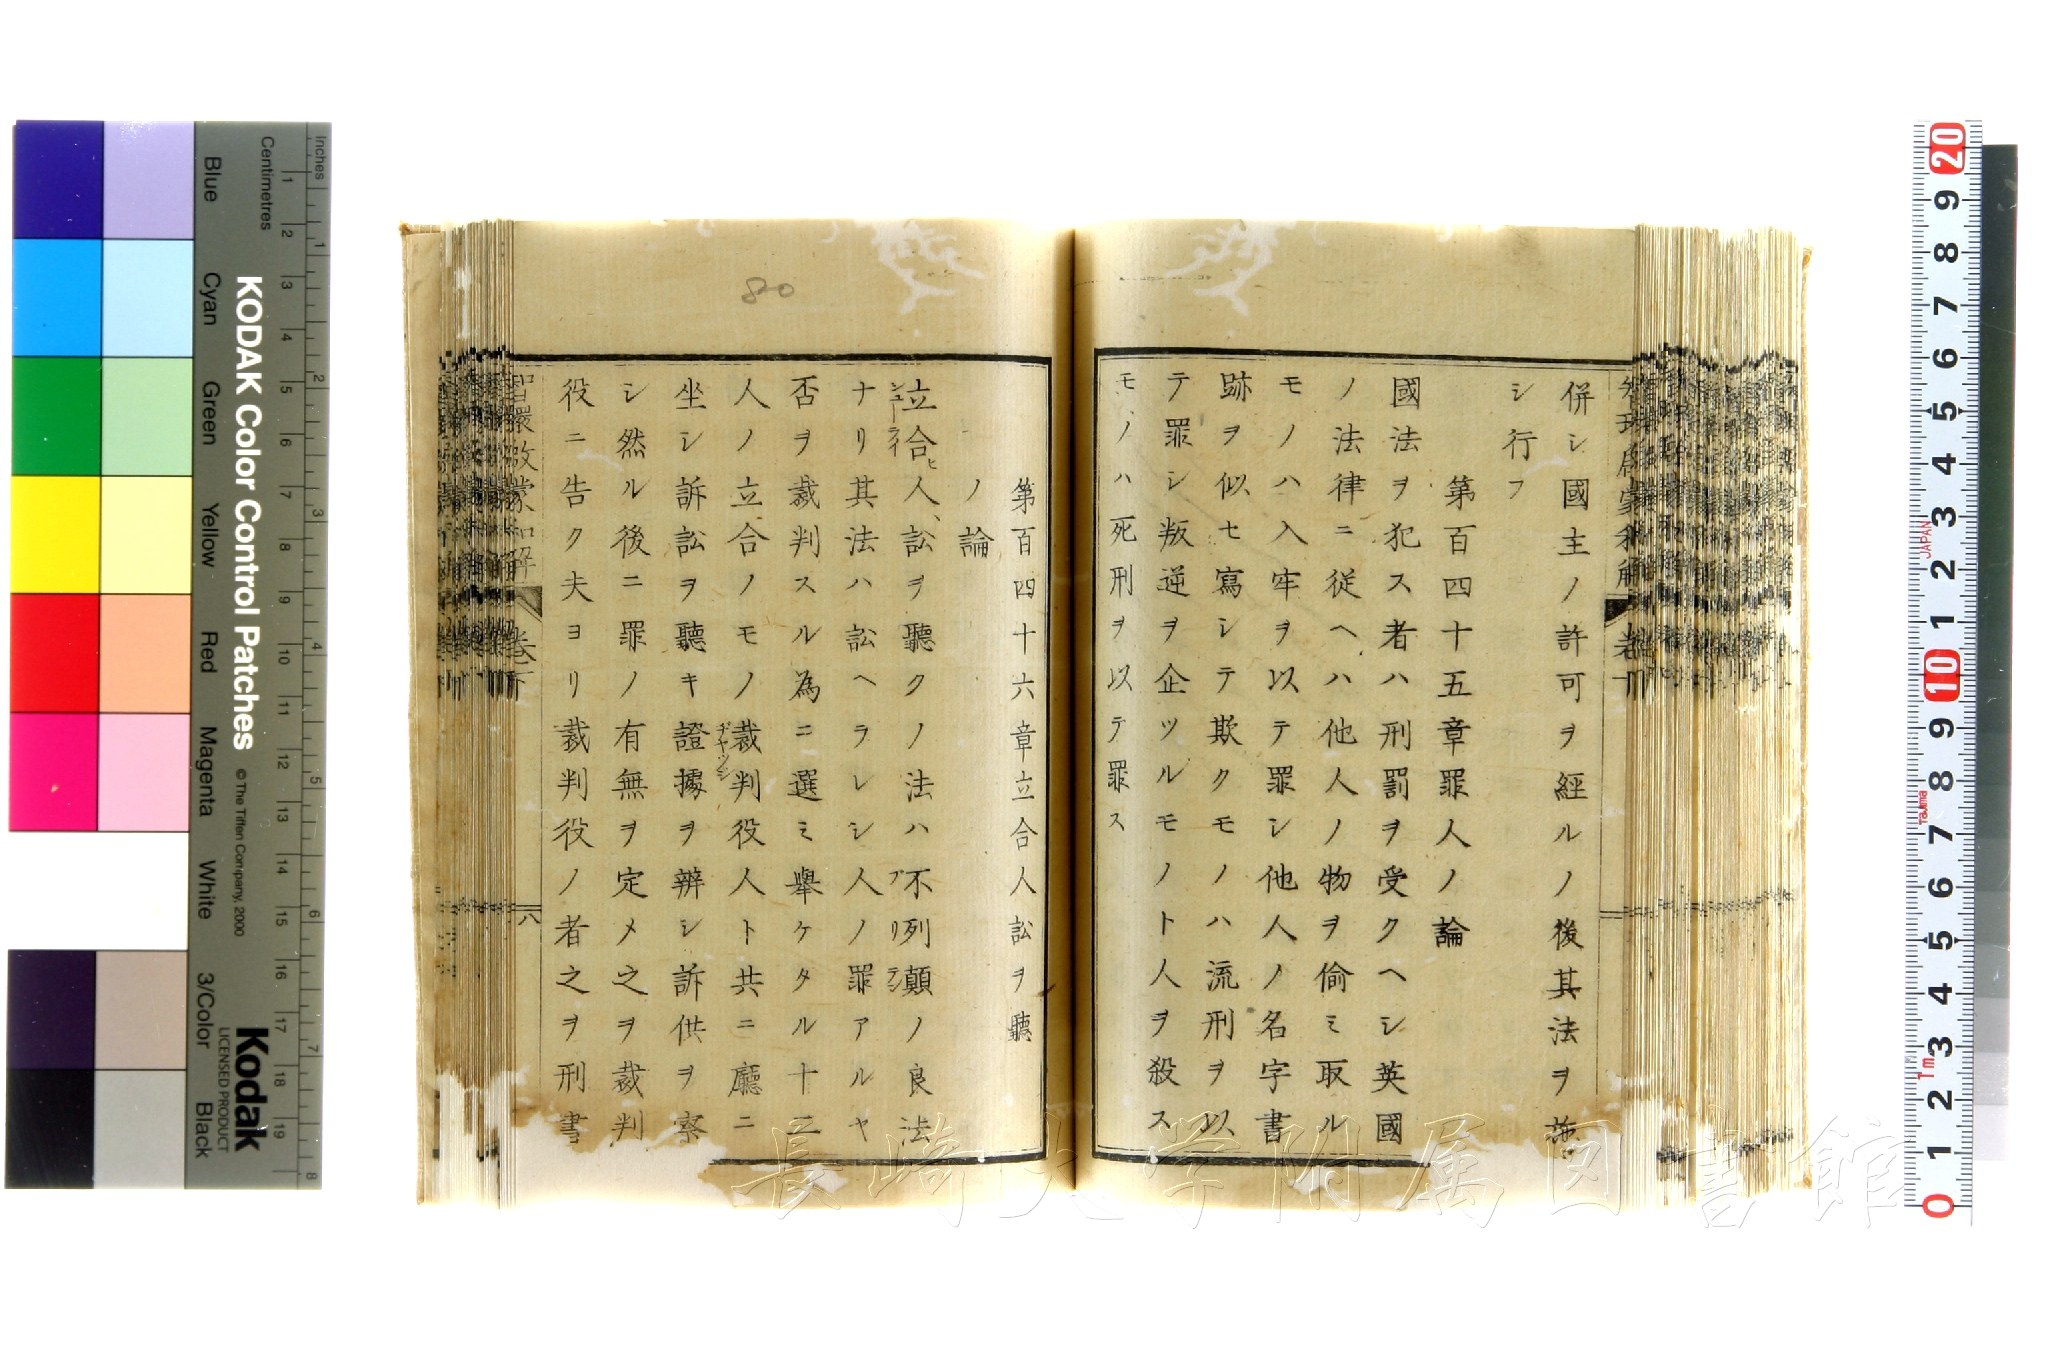 併シ國主ノ許可ヲ經ルノ後其法ヲ施
シ行フ
第百四十五章罪人ノ論
國法ヲ犯ス者ハ刑罰ヲ受クヘシ英國
ノ法律ニ従ヘハ他人ノ物ヲ偷ミ取ル
モノハ入牢ヲ以テ罪シ他人ノ名字書
跡ヲ似セ寫シテ欺クモノハ流刑ヲ以
テ罪シ叛逆ヲ企ツルモノト人ヲ殺ス
モノハ死刑ヲ以テ罪ス
第百四十六章立合人訟ヲ聽
ノ論
立合ヒ人、訟ヲ聽クノ法ハ不列顛ノ良法
ナリ其法ハ訟ヘラレシ人ノ罪アルヤ
否ヲ裁判スル為ニ選ミ舉ケタル十二
人ノ立合ノモノ裁判役人ト共ニ廳ニ
坐シ訴訟ヲ聽キ證據ヲ辨シ訴供ヲ察
シ然ル後ニ罪ノ有無ヲ定メ之ヲ裁判
役ニ告ク夫ヨリ裁判役ノ者之ヲ刑書
智環啟蒙和解
卷下
八
80
長崎大学附属図書館
KODAK Color Control Patches
© The Tiffen Company, 2000
Kodak
LICENSED PRODUCT
Inches
Centimetres
Blue
Cyan
Green
Yellow
Red
Magenta
White
3/Color
Black
1 2 3 4 5 6 7 8
1 2 3 4 5 6 7 8 9 10 11 12 13 14 15 16 17 18 19
20 9 8 7 6 5 4 3 2 1 10 9 8 7 6 5 4 3 2 1 0
JAPAN
Tajima